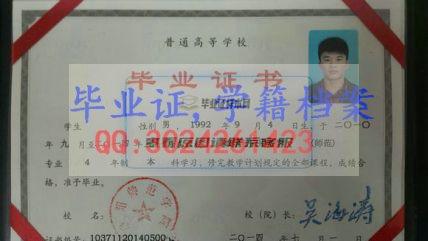 普通高等学校
毕业证书
毕业证样本网
毕业证,学籍档案
学生 性别 男 1992 年 9 月 4 日生，于二〇一〇
QQ:3021261423
看原图请联系客服
(师范)
专业 4 年制 本 科学习，修完教学计划规定的全部课程，成绩合
格，准予毕业。
校 名： 校（院）长：吴海涛
证书编号：10371120140500 二〇一四年七月 一日